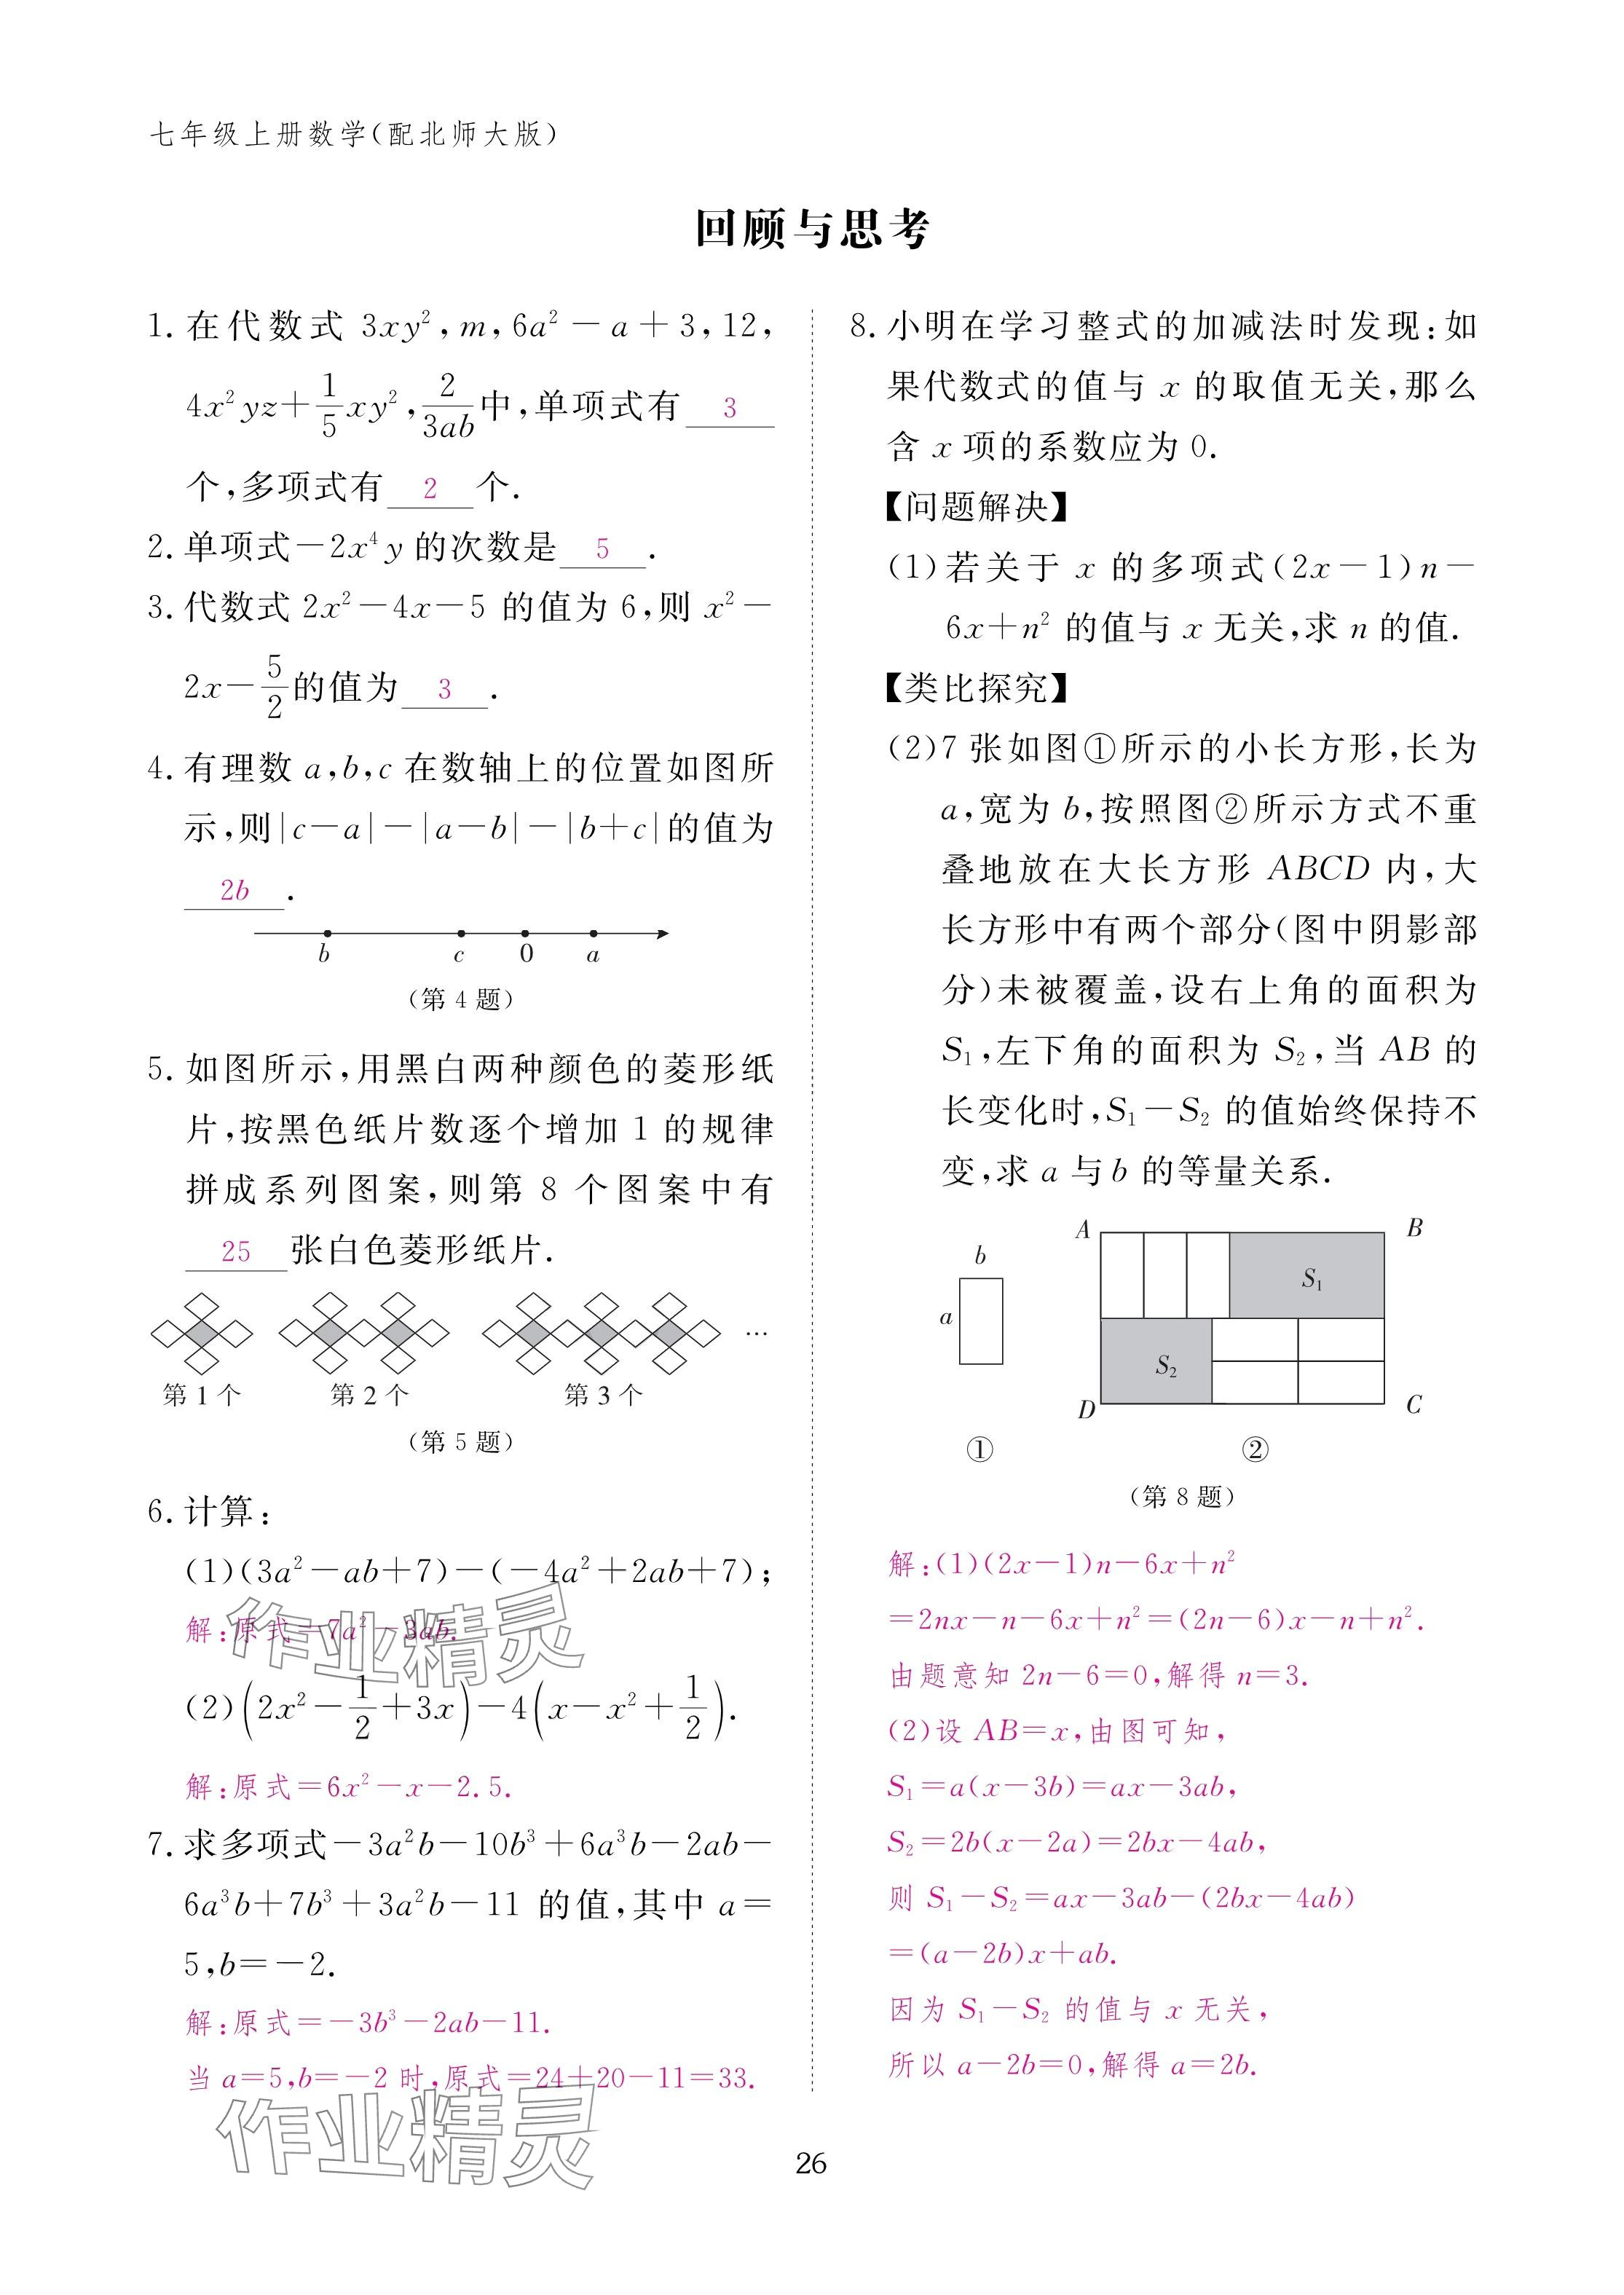 七年级上册数学(配北师大版)
回顾与思考
1. 在代数式 3xy²,m,6a²-a+3,12,
4x²yz+1/5xy²,2/3ab中,单项式有 3
个,多项式有 2 个.
2. 单项式-2x⁴y 的次数是 5 .
3. 代数式 2x²-4x-5 的值为 6,则 x²-
2x-5/2的值为 3 .
4. 有理数 a,b,c 在数轴上的位置如图所
示,则|c-a|-|a-b|-|b+c|的值为
2b .
b c 0 a
(第 4 题)
5. 如图所示,用黑白两种颜色的菱形纸
片,按黑色纸片数逐个增加 1 的规律
拼成系列图案,则第 8 个图案中有
25 张白色菱形纸片.
…
第 1 个 第 2 个 第 3 个
(第 5 题)
6. 计算:
(1)(3a²-ab+7)-(-4a²+2ab+7);
解:原式=7a²-3ab.
(2)(2x²-1/2+3x)-4(x-x²+1/2).
解:原式=6x²-x-2.5.
7. 求多项式-3a²b-10b³+6a³b-2ab-
6a³b+7b³+3a²b-11 的值,其中 a=
5,b=-2.
解:原式=-3b³-2ab-11.
当 a=5,b=-2 时,原式=24+20-11=33.
8. 小明在学习整式的加减法时发现:如
果代数式的值与 x 的取值无关,那么
含 x 项的系数应为 0.
【问题解决】
(1)若关于 x 的多项式(2x-1)n-
6x+n² 的值与 x 无关,求 n 的值.
【类比探究】
(2)7 张如图①所示的小长方形,长为
a,宽为 b,按照图②所示方式不重
叠地放在大长方形 ABCD 内,大
长方形中有两个部分(图中阴影部
分)未被覆盖,设右上角的面积为
S₁,左下角的面积为 S₂,当 AB 的
长变化时,S₁-S₂ 的值始终保持不
变,求 a 与 b 的等量关系.
A B
b
a
S₁
S₂
D C
① ②
(第 8 题)
解:(1)(2x-1)n-6x+n²
=2nx-n-6x+n²=(2n-6)x-n+n².
由题意知 2n-6=0,解得 n=3.
(2)设 AB=x,由图可知,
S₁=a(x-3b)=ax-3ab,
S₂=2b(x-2a)=2bx-4ab,
则 S₁-S₂=ax-3ab-(2bx-4ab)
=(a-2b)x+ab.
因为 S₁-S₂ 的值与 x 无关,
所以 a-2b=0,解得 a=2b.
作业精灵
作业精灵
26